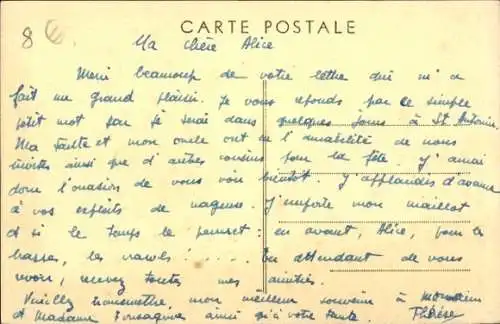 8
CARTE POSTALE
Ma chère Alice
Merci beaucoup de votre lettre qui m'a
fait un grand plaisir. Je vous reponds par ce simple
petit mot car je serai dans quelques jours à St Antonin
Ma tante et mon oncle ont eu l'amabilité de nous
invites ainsi que d'autres cousins pour la fête. J'aurai
donc l'occasion de vous voir bientôt. J'applaudis d'avance
à vos exploits de nageuse. J'emporte mon maillot
et si le temps le permet : en avant, Alice, pour la
basses, les crawls! ..... En attendant de vous
revoir, recevez toutes mes amitiés.
Veuillez transmettre mon meilleur souvenir à Monsieur
et Madame ainsi qu'à votre tante. Thérèse